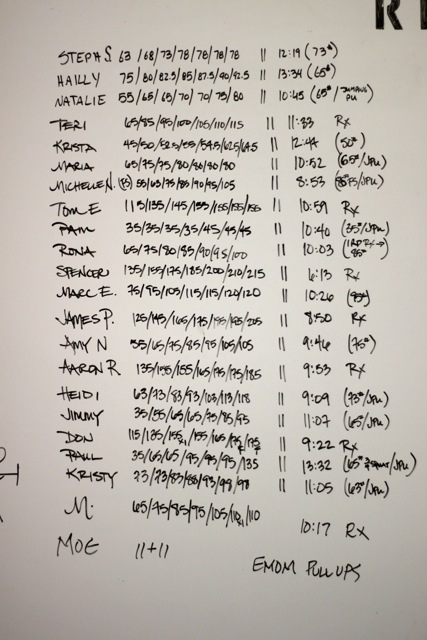 STEPH S. 63 /68/73/78/78/78/78 || 12:19 (73#)
HAILLY 75/80/82.5/85/87.5/90/92.5 || 13:34 (65#)
NATALIE 55/65/65/70/70/75/80 || 10:45 (65#/JUMPING PU)
TERI 65/85/95/100/105/110/115 || 11:33 Rx
KRISTA 45/50/52.5/55/59.5/62.5/64.5 || 12:44 (50#)
MARIA 65/75/75/80/80/80/80 || 10:52 (65#/JPU)
MICHELLE N. 55/65/75/85/90/95/105 || 8:53 /JPU)
TOM E 115/135/145/155/155/155/155 || 10:59 Rx
PAM 35/35/35/35/45/45/45 || 10:40 (35#/JPU)
RONA 65/75/80/85/90/95/100 || 10:03 (1RD Rx→
SPENCER 135/155/175/185/200/210/215 || 6:13 Rx
MARC E. 75/95/105/115/115/120/120 || 10:26 (95#)
JAMES P. 125/145/165/175/195/195/205 || 8:50 Rx
AMY N 55/65/75/85/95/105/105 || 9:46 (75#)
AARON R. 135/155/155/165/175/175/185 || 9:53 Rx
HEIDI 63/73/83/93/103/113/118 || 9:09 (73#/JPU)
JIMMY 35/55/65/65/75/85/95 || 11:07 (65#/JPU)
DON 115/135/155/155/165/175/175 || 9:22 Rx
PAUL 35/65/65/95/95/95/135 || 13:32 (65# /JPU)
KRISTY 73/73/83/88/93/98/98 || 11:05 (63#/JPU)
M. 65/75/85/95/105/110/110 10:17 Rx
MOE 11+11 EMOM PULL UPS